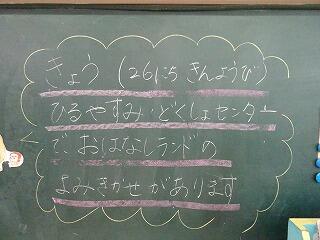 きょう(26にち きんようび)
ひるやすみ・どくしょセンター
で、おはなしランドの
よみきかせがあります